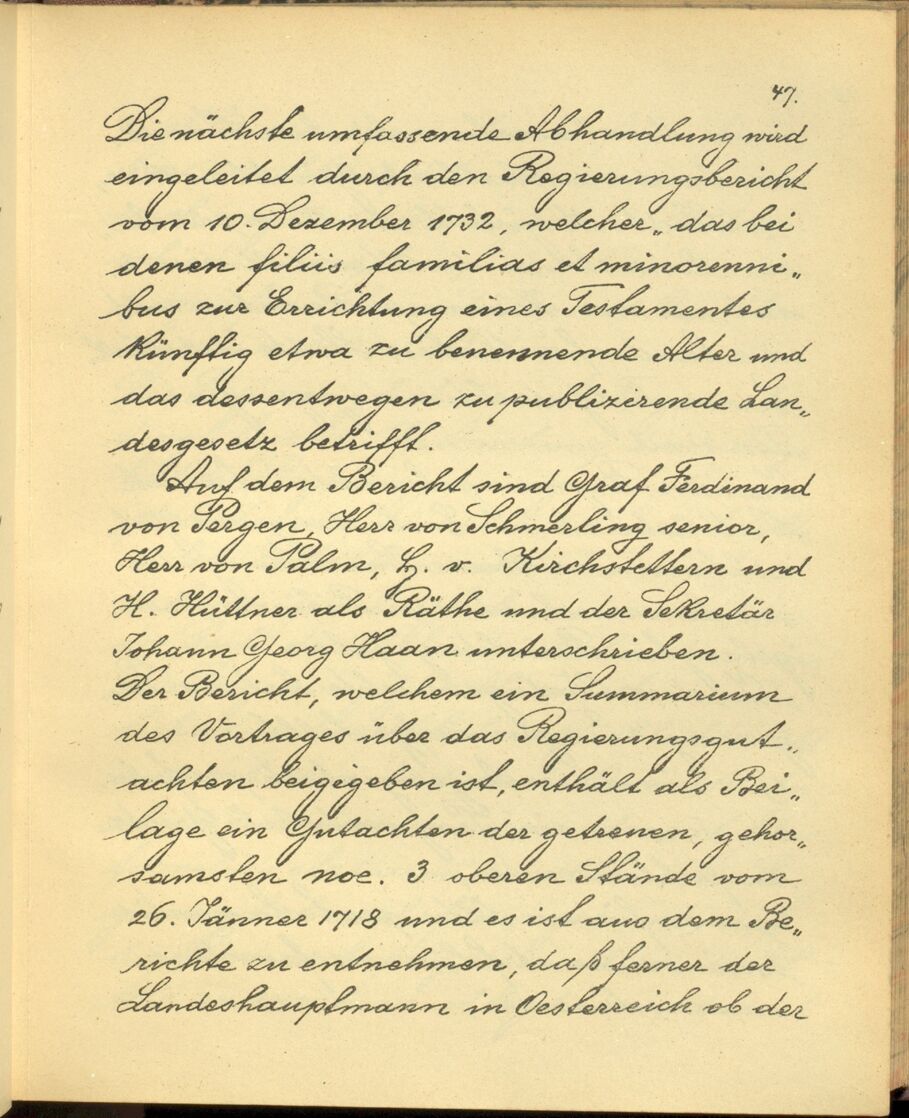 47.
Die nächste umfassende Abhandlung wird
eingeleitet durch den Regierungsbericht
vom 10. Dezember 1732, welcher „das bei
denen filiis familias et minorenni„
bus zur Errichtung eines Testamentes
künftig etwa zu benennende Alter und
das dessentwegen zu publizirende Lan„
desgesetz betrifft.
Auf dem Bericht sind Graf Ferdinand
von Pergen, Herr von Schmerling senior,
Herr von Palm, H. v. Kirchstettern und
H. Hüttner als Räthe und der Sekretär
Johann Georg Haan unterschrieben.
Der Bericht, welchem ein Summarium
des Vortrages über das Regierungsgut„
achten beigegeben ist, enthält als Bei„
lage ein Gutachten der getreuen, gehor„
samsten noe. 3 oberen Stände vom
26. Jänner 1718 und es ist aus dem Be„
richte zu entnehmen, daß ferner der
Landeshauptmann in Oesterreich ob der